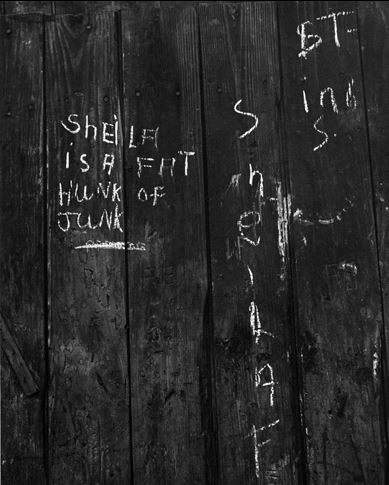 SheiLA
iS A FAT
HUNK OF
JUNK
SheilA